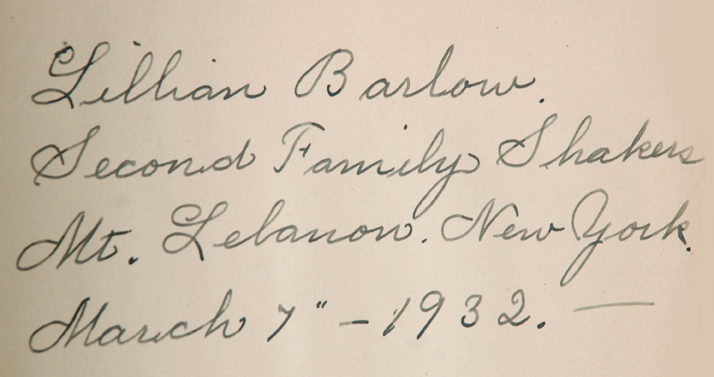 Lillian Barlow.
Second Family Shakers
Mt. Lebanon. New York.
March 7" – 1932. —